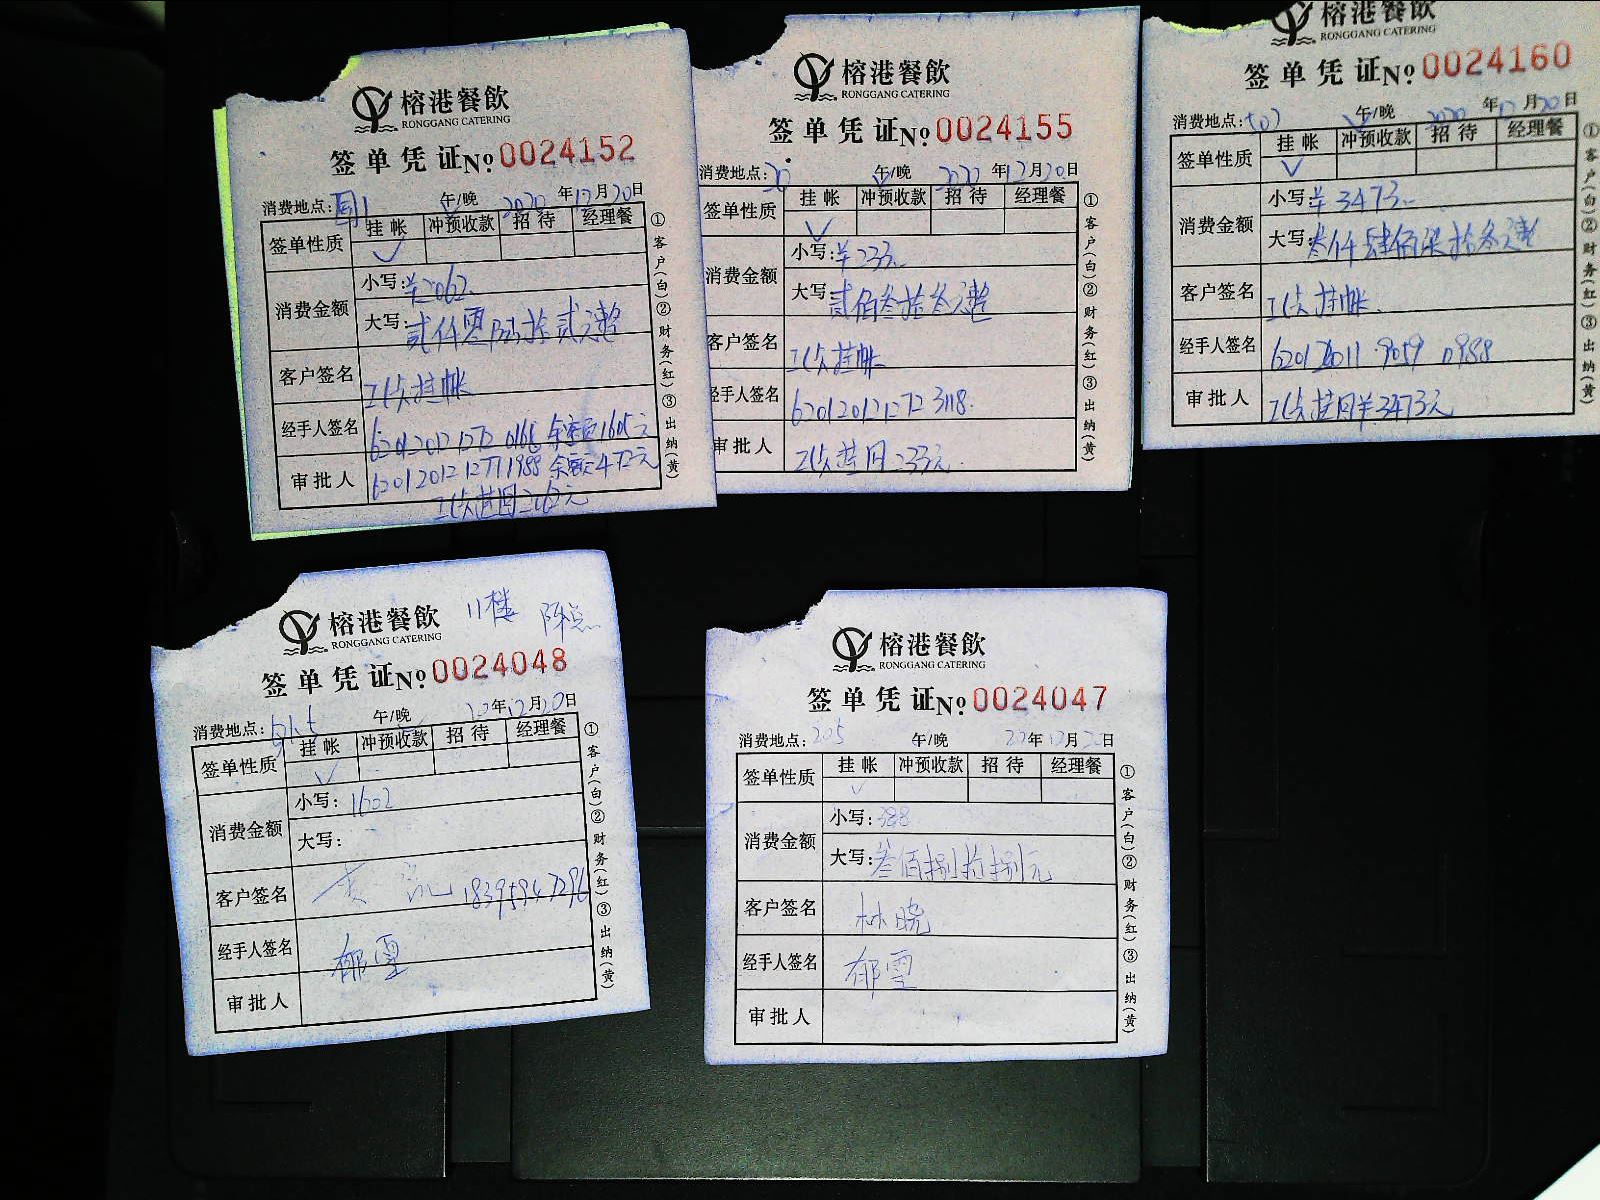 榕港餐飲
RONGGANG CATERING
签单凭证No 0024152
消费地点: 午/晚 2020年12月20日
签单性质 挂帐 冲预收款 招待 经理餐
✓
消费金额 小写:¥2062
大写:贰仟零陆拾贰元整
客户签名 挂帐
经手人签名
审批人
①客户(白)②财务(红)③出纳(黄)
榕港餐飲
RONGGANG CATERING
签单凭证No 0024155
消费地点: 午/晚 12月20日
签单性质 挂帐 冲预收款 招待 经理餐
✓
消费金额 小写:¥233元
大写 贰佰叁拾叁元整
客户签名 挂帐
经手人签名 6201201212723118.
审批人 233元.
①客户(白)②财务(红)③出纳(黄)
榕港餐飲
RONGGANG CATERING
签单凭证No 0024160
消费地点: 午/晚 2020年12月20日
签单性质 挂帐 冲预收款 招待 经理餐
✓
消费金额 小写:¥3473
大写:叁仟肆佰柒拾叁元整
客户签名 挂帐.
经手人签名
审批人 ¥3473元
①客户(白)②财务(红)③出纳(黄)
11楼
榕港餐飲
RONGGANG CATERING
签单凭证No 0024048
消费地点: 午/晚 年12月20日
签单性质 挂帐 冲预收款 招待 经理餐
✓
消费金额 小写:1602
大写:
客户签名
经手人签名 郁雪
审批人
①客户(白)②财务(红)③出纳(黄)
榕港餐飲
RONGGANG CATERING
签单凭证No 0024047
消费地点:205 午/晚 年12月20日
签单性质 挂帐 冲预收款 招待 经理餐
✓
消费金额 小写:388
大写:叁佰捌拾捌元
客户签名 林晓
经手人签名 郁雪
审批人
①客户(白)②财务(红)③出纳(黄)